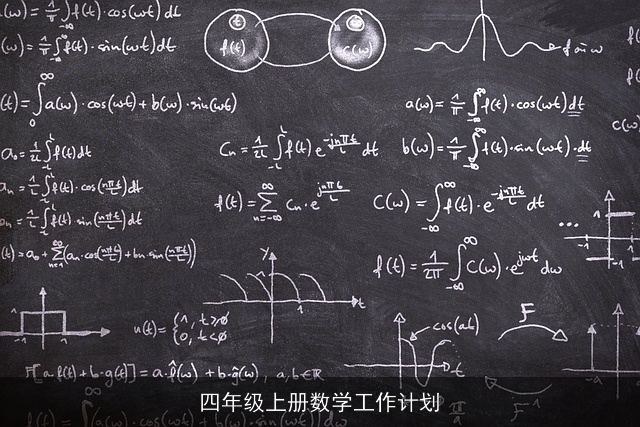 a(ω) = 1/π ∫f(t)·cos(ωt) dt
(ω) = 1/π ∫f(t)·sin(ωt)dt
f(t)
t
c(ω)
t
(t) = ∫₀^∞ a(ω)·cos(ωt) + b(ω)·sin(ωt)
a(ω) = 1/π ∫_{-∞}^{∞} f(t)·cos(ωt)dt
a₀ = 1/2L ∫_{-L}^{L} f(t)dt
Cn = 1/2L ∫_{-L}^{L} f(t) e^{-jnπt/L} dt
b(ω) = 1/π ∫_{-∞}^{∞} f(t)·sin(ωt)·dt
c(ω)
an = 1/L ∫_{-L}^{L} f(t)·cos(nπt/L)dt
f(t) = Σ_{n=-∞}^{∞} Cn·e^{jnπt/L}
C(ω) = ∫_{-∞}^{∞} f(t)·e^{-jnπt/L} dt
bn = 1/L ∫_{-L}^{L} f(t)·sin(nπt/L)dt
...
(t) = a₀ + Σ_{n=1}^{∞}(an·cos(nπt/L) + bn·sin(nπt/L))
f(t) = 1/2π ∫_{-∞}^{∞} C(ω)·e^{jωt} dω
y
1
t
1
-1
u(t) = {1, t≥0
0, t<0
cos(at)
t
F
F⁻¹
-a
F[a·f(t) + b·g(t)] = a·f̂(ω) + b·ĝ(ω), a,b∈ℝ
四年级上册数学工作计划